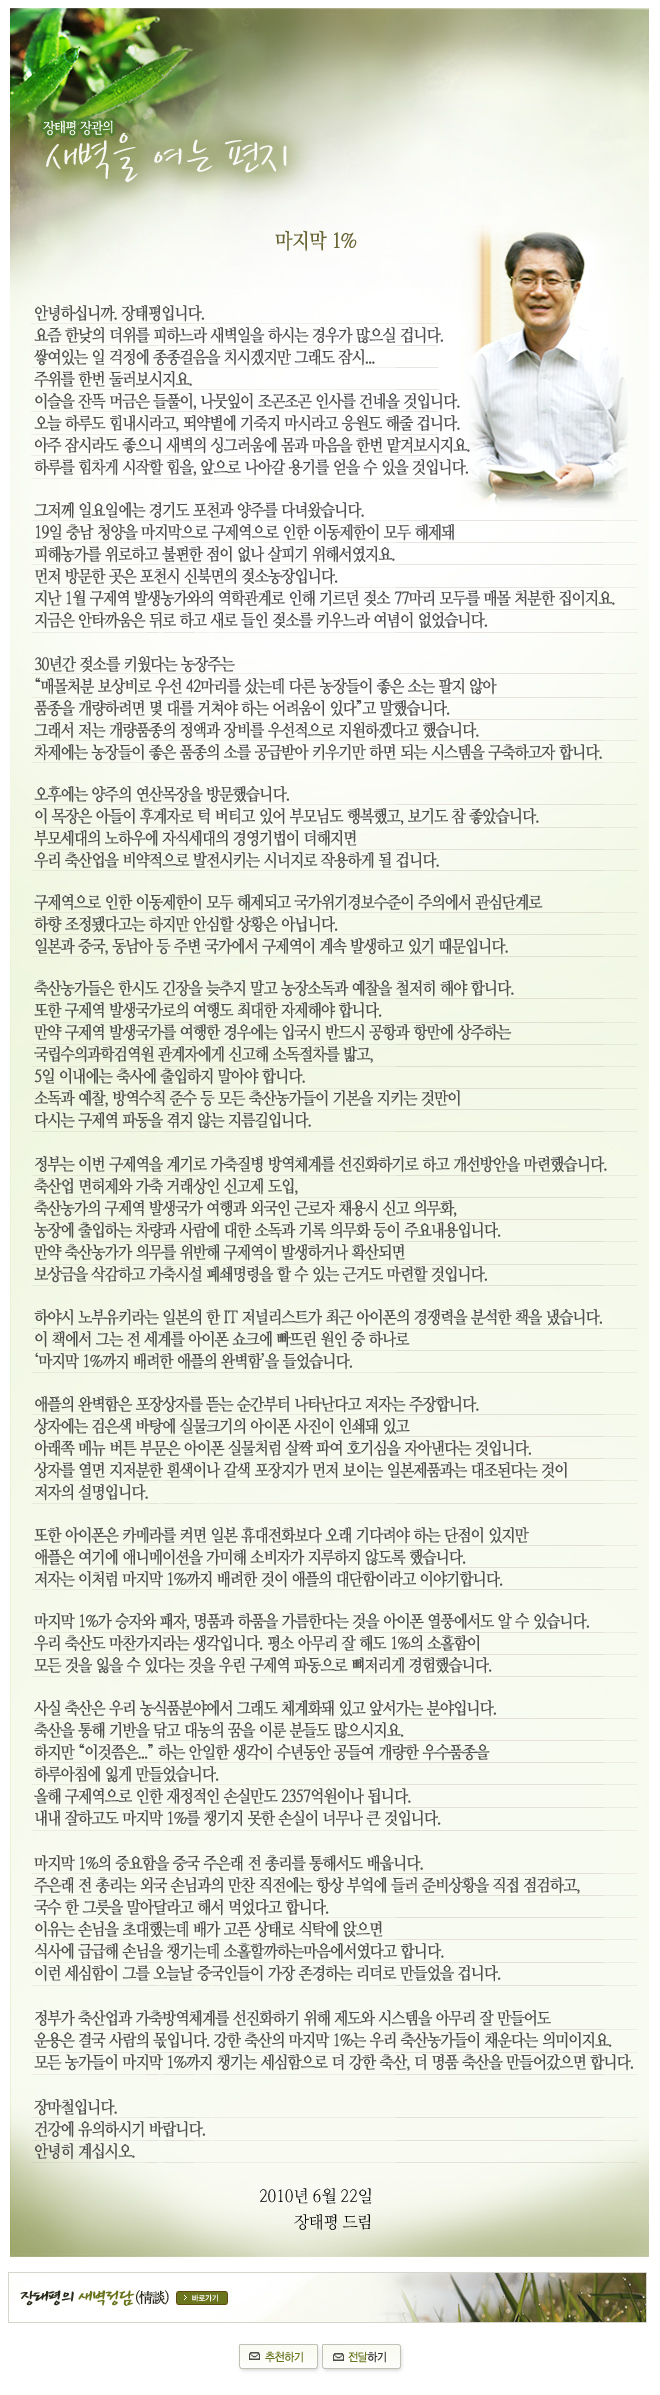 장태평 장관의
새벽을 여는 편지
마지막 1%
안녕하십니까. 장태평입니다.
요즘 한낮의 더위를 피하느라 새벽일을 하시는 경우가 많으실 겁니다.
쌓여있는 일 걱정에 종종걸음을 치시겠지만 그래도 잠시...
주위를 한번 둘러보시지요.
이슬을 잔뜩 머금은 들풀이, 나뭇잎이 조곤조곤 인사를 건네올 것입니다.
오늘 하루도 힘내시라고, 뙤약볕에 기죽지 마시라고 응원도 해줄 겁니다.
아주 잠시라도 좋으니 새벽의 싱그러움에 몸과 마음을 한번 맡겨보시지요.
하루를 힘차게 시작할 힘을, 앞으로 나아갈 용기를 얻을 수 있을 것입니다.
그저께 일요일에는 경기도 포천과 양주를 다녀왔습니다.
19일 충남 청양을 마지막으로 구제역으로 인한 이동제한이 모두 해제돼
피해농가를 위로하고 불편한 점이 없나 살피기 위해서였지요.
먼저 방문한 곳은 포천시 신북면의 젖소농장입니다.
지난 1월 구제역 발생농가와의 역학관계로 인해 기르던 젖소 77마리 모두를 매몰 처분한 집이지요.
지금은 안타까움은 뒤로 하고 새로 들인 젖소를 키우느라 여념이 없었습니다.
30년간 젖소를 키웠다는 농장주는
“매몰처분 보상비로 우선 42마리를 샀는데 다른 농장들이 좋은 소는 팔지 않아
품종을 개량하려면 몇 대를 거쳐야 하는 어려움이 있다”고 말했습니다.
그래서 저는 개량품종의 정액과 장비를 우선적으로 지원하겠다고 했습니다.
차제에는 농장들이 좋은 품종의 소를 공급받아 키우기만 하면 되는 시스템을 구축하고자 합니다.
오후에는 양주의 연산목장을 방문했습니다.
이 목장은 아들이 후계자로 턱 버티고 있어 부모님도 행복했고, 보기도 참 좋았습니다.
부모세대의 노하우에 자식세대의 경영기법이 더해지면
우리 축산업을 비약적으로 발전시키는 시너지로 작용하게 될 겁니다.
구제역으로 인한 이동제한이 모두 해제되고 국가위기경보수준이 주의에서 관심단계로
하향 조정됐다고는 하지만 안심할 상황은 아닙니다.
일본과 중국, 동남아 등 주변 국가에서 구제역이 계속 발생하고 있기 때문입니다.
축산농가들은 한시도 긴장을 늦추지 말고 농장소독과 예찰을 철저히 해야 합니다.
또한 구제역 발생국가로의 여행도 최대한 자제해야 합니다.
만약 구제역 발생국가를 여행한 경우에는 입국시 반드시 공항과 항만에 상주하는
국립수의과학검역원 관계자에게 신고해 소독절차를 밟고,
5일 이내에는 축사에 출입하지 말아야 합니다.
소독과 예찰, 방역수칙 준수 등 모든 축산농가들이 기본을 지키는 것만이
다시는 구제역 파동을 겪지 않는 지름길입니다.
정부는 이번 구제역을 계기로 가축질병 방역체계를 선진화하기로 하고 개선방안을 마련했습니다.
축산업 면허제와 가축 거래상인 신고제 도입,
축산농가의 구제역 발생국가 여행과 외국인 근로자 채용시 신고 의무화,
농장에 출입하는 차량과 사람에 대한 소독과 기록 의무화 등이 주요내용입니다.
만약 축산농가가 의무를 위반해 구제역이 발생하거나 확산되면
보상금을 삭감하고 가축시설 폐쇄명령을 할 수 있는 근거도 마련할 것입니다.
하야시 노부유키라는 일본의 한 IT 저널리스트가 최근 아이폰의 경쟁력을 분석한 책을 냈습니다.
이 책에서 그는 전 세계를 아이폰 쇼크에 빠뜨린 원인 중 하나로
‘마지막 1%까지 배려한 애플의 완벽함’을 들었습니다.
애플의 완벽함은 포장상자를 뜯는 순간부터 나타난다고 저자는 주장합니다.
상자에는 검은색 바탕에 실물크기의 아이폰 사진이 인쇄돼 있고
아래쪽 메뉴 버튼 부문은 아이폰 실물처럼 살짝 파여 호기심을 자아낸다는 것입니다.
상자를 열면 지저분한 흰색이나 갈색 포장지가 먼저 보이는 일본제품과는 대조된다는 것이
저자의 설명입니다.
또한 아이폰은 카메라를 켜면 일본 휴대전화보다 오래 기다려야 하는 단점이 있지만
애플은 여기에 애니메이션을 가미해 소비자가 지루하지 않도록 했습니다.
저자는 이처럼 마지막 1%까지 배려한 것이 애플의 대단함이라고 이야기합니다.
마지막 1%가 승자와 패자, 명품과 하품을 가름한다는 것을 아이폰 열풍에서도 알 수 있습니다.
우리 축산도 마찬가지라는 생각입니다. 평소 아무리 잘 해도 1%의 소홀함이
모든 것을 잃을 수 있다는 것을 우린 구제역 파동으로 뼈저리게 경험했습니다.
사실 축산은 우리 농식품분야에서 그래도 체계화돼 있고 앞서가는 분야입니다.
축산을 통해 기반을 닦고 대농의 꿈을 이룬 분들도 많으시지요.
하지만 “이것쯤은...” 하는 안일한 생각이 수년동안 공들여 개량한 우수품종을
하루아침에 잃게 만들었습니다.
올해 구제역으로 인한 재정적인 손실만도 2357억원이나 됩니다.
내내 잘하고도 마지막 1%를 챙기지 못한 손실이 너무나 큰 것입니다.
마지막 1%의 중요함을 중국 주은래 전 총리를 통해서도 배웁니다.
주은래 전 총리는 외국 손님과의 만찬 직전에는 항상 부엌에 들러 준비상황을 직접 점검하고,
국수 한 그릇을 말아달라고 해서 먹었다고 합니다.
이유는 손님을 초대했는데 배가 고픈 상태로 식탁에 앉으면
식사에 급급해 손님을 챙기는데 소홀할까하는마음에서였다고 합니다.
이런 세심함이 그를 오늘날 중국인들이 가장 존경하는 리더로 만들었을 겁니다.
정부가 축산업과 가축방역체계를 선진화하기 위해 제도와 시스템을 아무리 잘 만들어도
운용은 결국 사람의 몫입니다. 강한 축산의 마지막 1%는 우리 축산농가들이 채운다는 의미이지요.
모든 농가들이 마지막 1%까지 챙기는 세심함으로 더 강한 축산, 더 명품 축산을 만들어갔으면 합니다.
장마철입니다.
건강에 유의하시기 바랍니다.
안녕히 계십시오.
2010년 6월 22일
장태평 드림
장태평의 새벽정담(情談) 바로가기
추천하기 전달하기